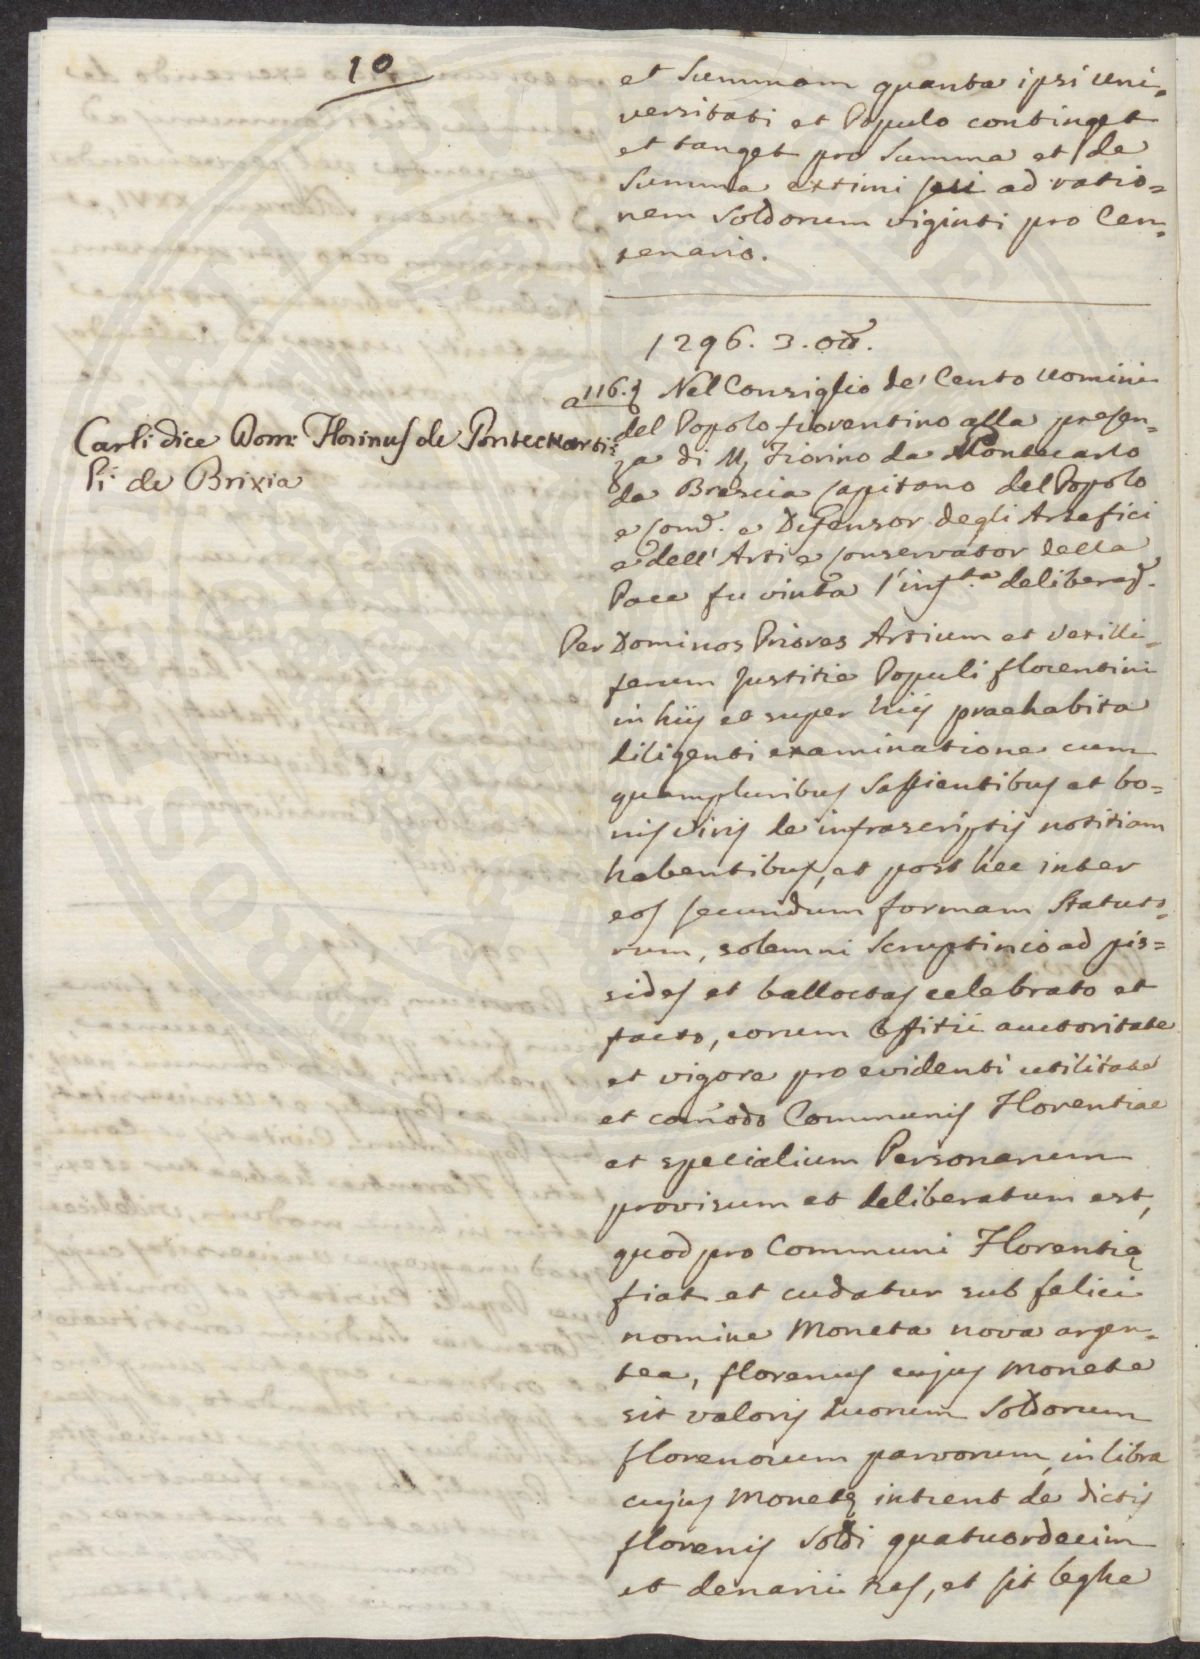 10
et Summam quanta ipsi Uni-
versitati et Populo continget
et tanget pro Summa et de
Summa extimi sui ad ratio=
nem Soldorum viginti pro Cen-
tenario.
1296. 3. Ott.
a 116. Nel Consiglio de' Cento uomini
del Popolo fiorentino alla presen-
za di M. Fiorino da Montecarlo
da Brescia Capitano del Popolo
e Difensor degli Artefici
e dell' Arti e Conservator della
Pace fu vinta l'infta. deliberaz.
Carli dice Dom: Florinus de Pontecharli
de Brixia
Per Dominos Priores Artium et Vexilli-
ferum Justitie Populi florentini
in hiis et super hiis praehabita
diligenti examinatione cum
quampluribus Sapientibus et bo=
nis viris de infrascriptis notitiam
habentibus, et post hec inter
eos secundum formam Statuto-
rum, solemni Scruptineo ad pis=
sides et balloctas celebrato et
facto, eorum Offitii auctoritate
et vigore pro evidenti utilitate
et comodo Communis Florentiae
et specialium Personarum
provisum et deliberatum est,
quod pro Communi Florentię
fiat et cudatur sub felici
nomine Moneta nova argen-
tea, florenus cujus Monete
sit valoris duorum Soldorum
florenorum parvorum, in libra
cujus Monetę intrent de dictis
florenis Soldi quatuordecim
et denarii tres, et sit leghe